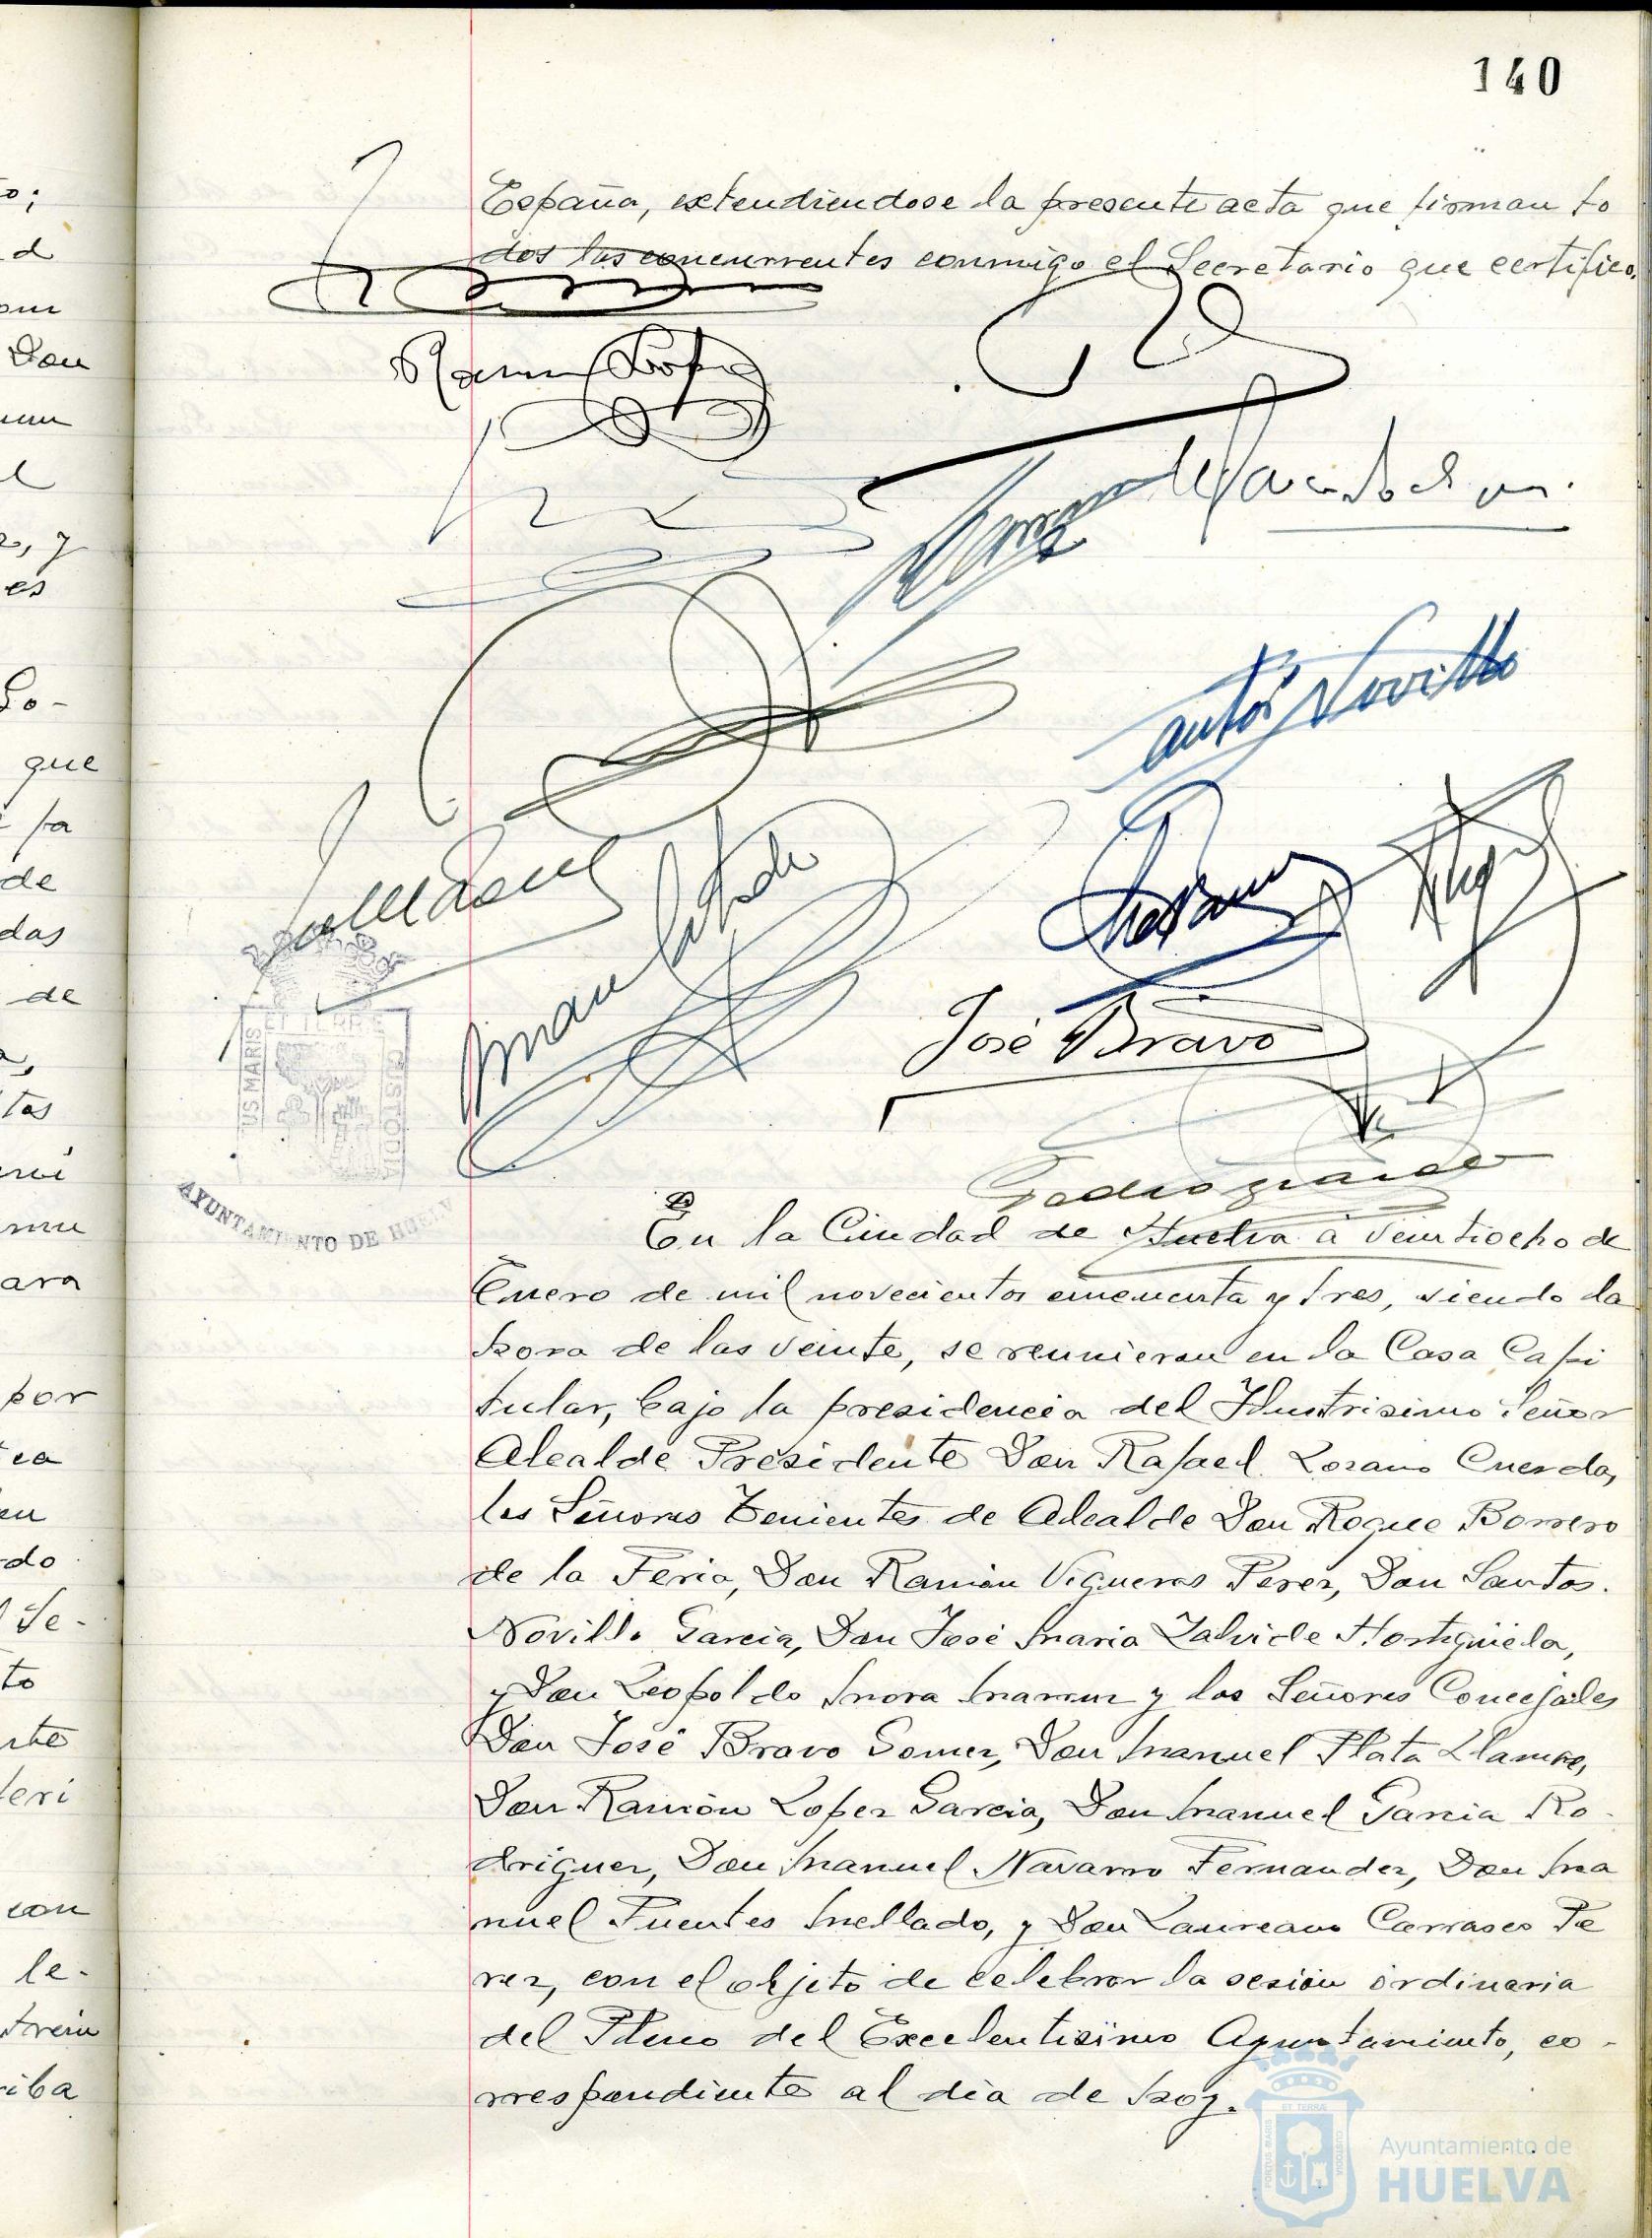 140
España, extendiendose la presente acta que firman to
dos los concurrentes conmigo el Secretario que certifico.
Ramon Lopez
José Bravo
Pedro
US MARIS
ET TERRE
CUSTODIA
AYUNTAMIENTO DE HUELV
En la Ciudad de Huelva a veintiocho de
Enero de mil novecientos cincuenta y tres, siendo la
hora de las veinte, se reunieron en la Casa Capi
tular, bajo la presidencia del Ilustrisimo Señor
Alcalde Presidente Don Rafael Lozano Cuerda,
los Señores Tenientes de Alcalde Don Roque Borrero
de la Feria, Don Ramón Vigueras Perez, Don Santos
Novillo Garcia, Don José Maria Zalvide Hortigüela,
y Don Leopoldo Mora Marrun y los Señores Concejales
Don José Bravo Gomez, Don Manuel Plata Llamas,
Don Ramón Lopez Garcia, Don Manuel Garcia Ro-
driguez, Don Manuel Navarro Fernandez, Don Ma
nuel Fuentes Mellado, y Don Laureano Carrasco Pe
rez, con el objeto de celebrar la sesión ordinaria
del Pleno del Excelentisimo Ayuntamiento, co-
rrespondiente al dia de hoy.
Ayuntamiento de
HUELVA
o;
d
Don
l
, y
es
Lo-
que
fa
de
das
de
tas
ara
por
do
Se-
to
teri
con
le-
iba